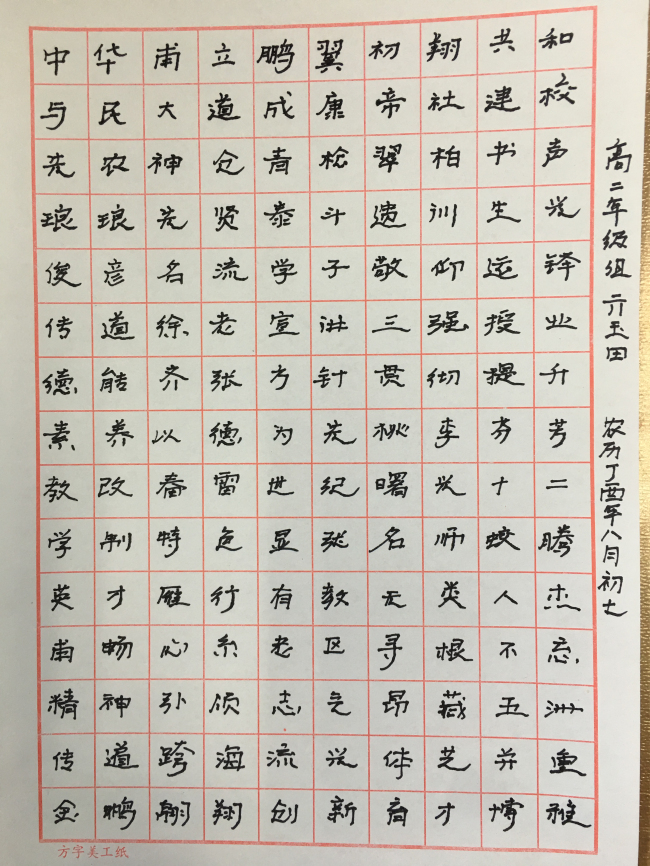 中华甫立鹏翼初翔共和
与民大道成康帝社建校
先农神仓青松翠柏书声
琅琅先贤泰斗遗训生光
俊彦名流学子敬仰运铎
传道徐老宣讲三强授业
德能齐张方针贯彻提升
素养以德为先桃李芬芳
教改春雷世纪曙光十二
学制特色显名师蛟腾
英才雁行有教无类人杰
南畅心系老区寻根不忘
精神引领志气昂藏五洲
传道跨海流光体艺并重
金鹏翱翔创新育才博雅
高二年级组 亓玉田 农历丁酉年八月初七
方字美工纸